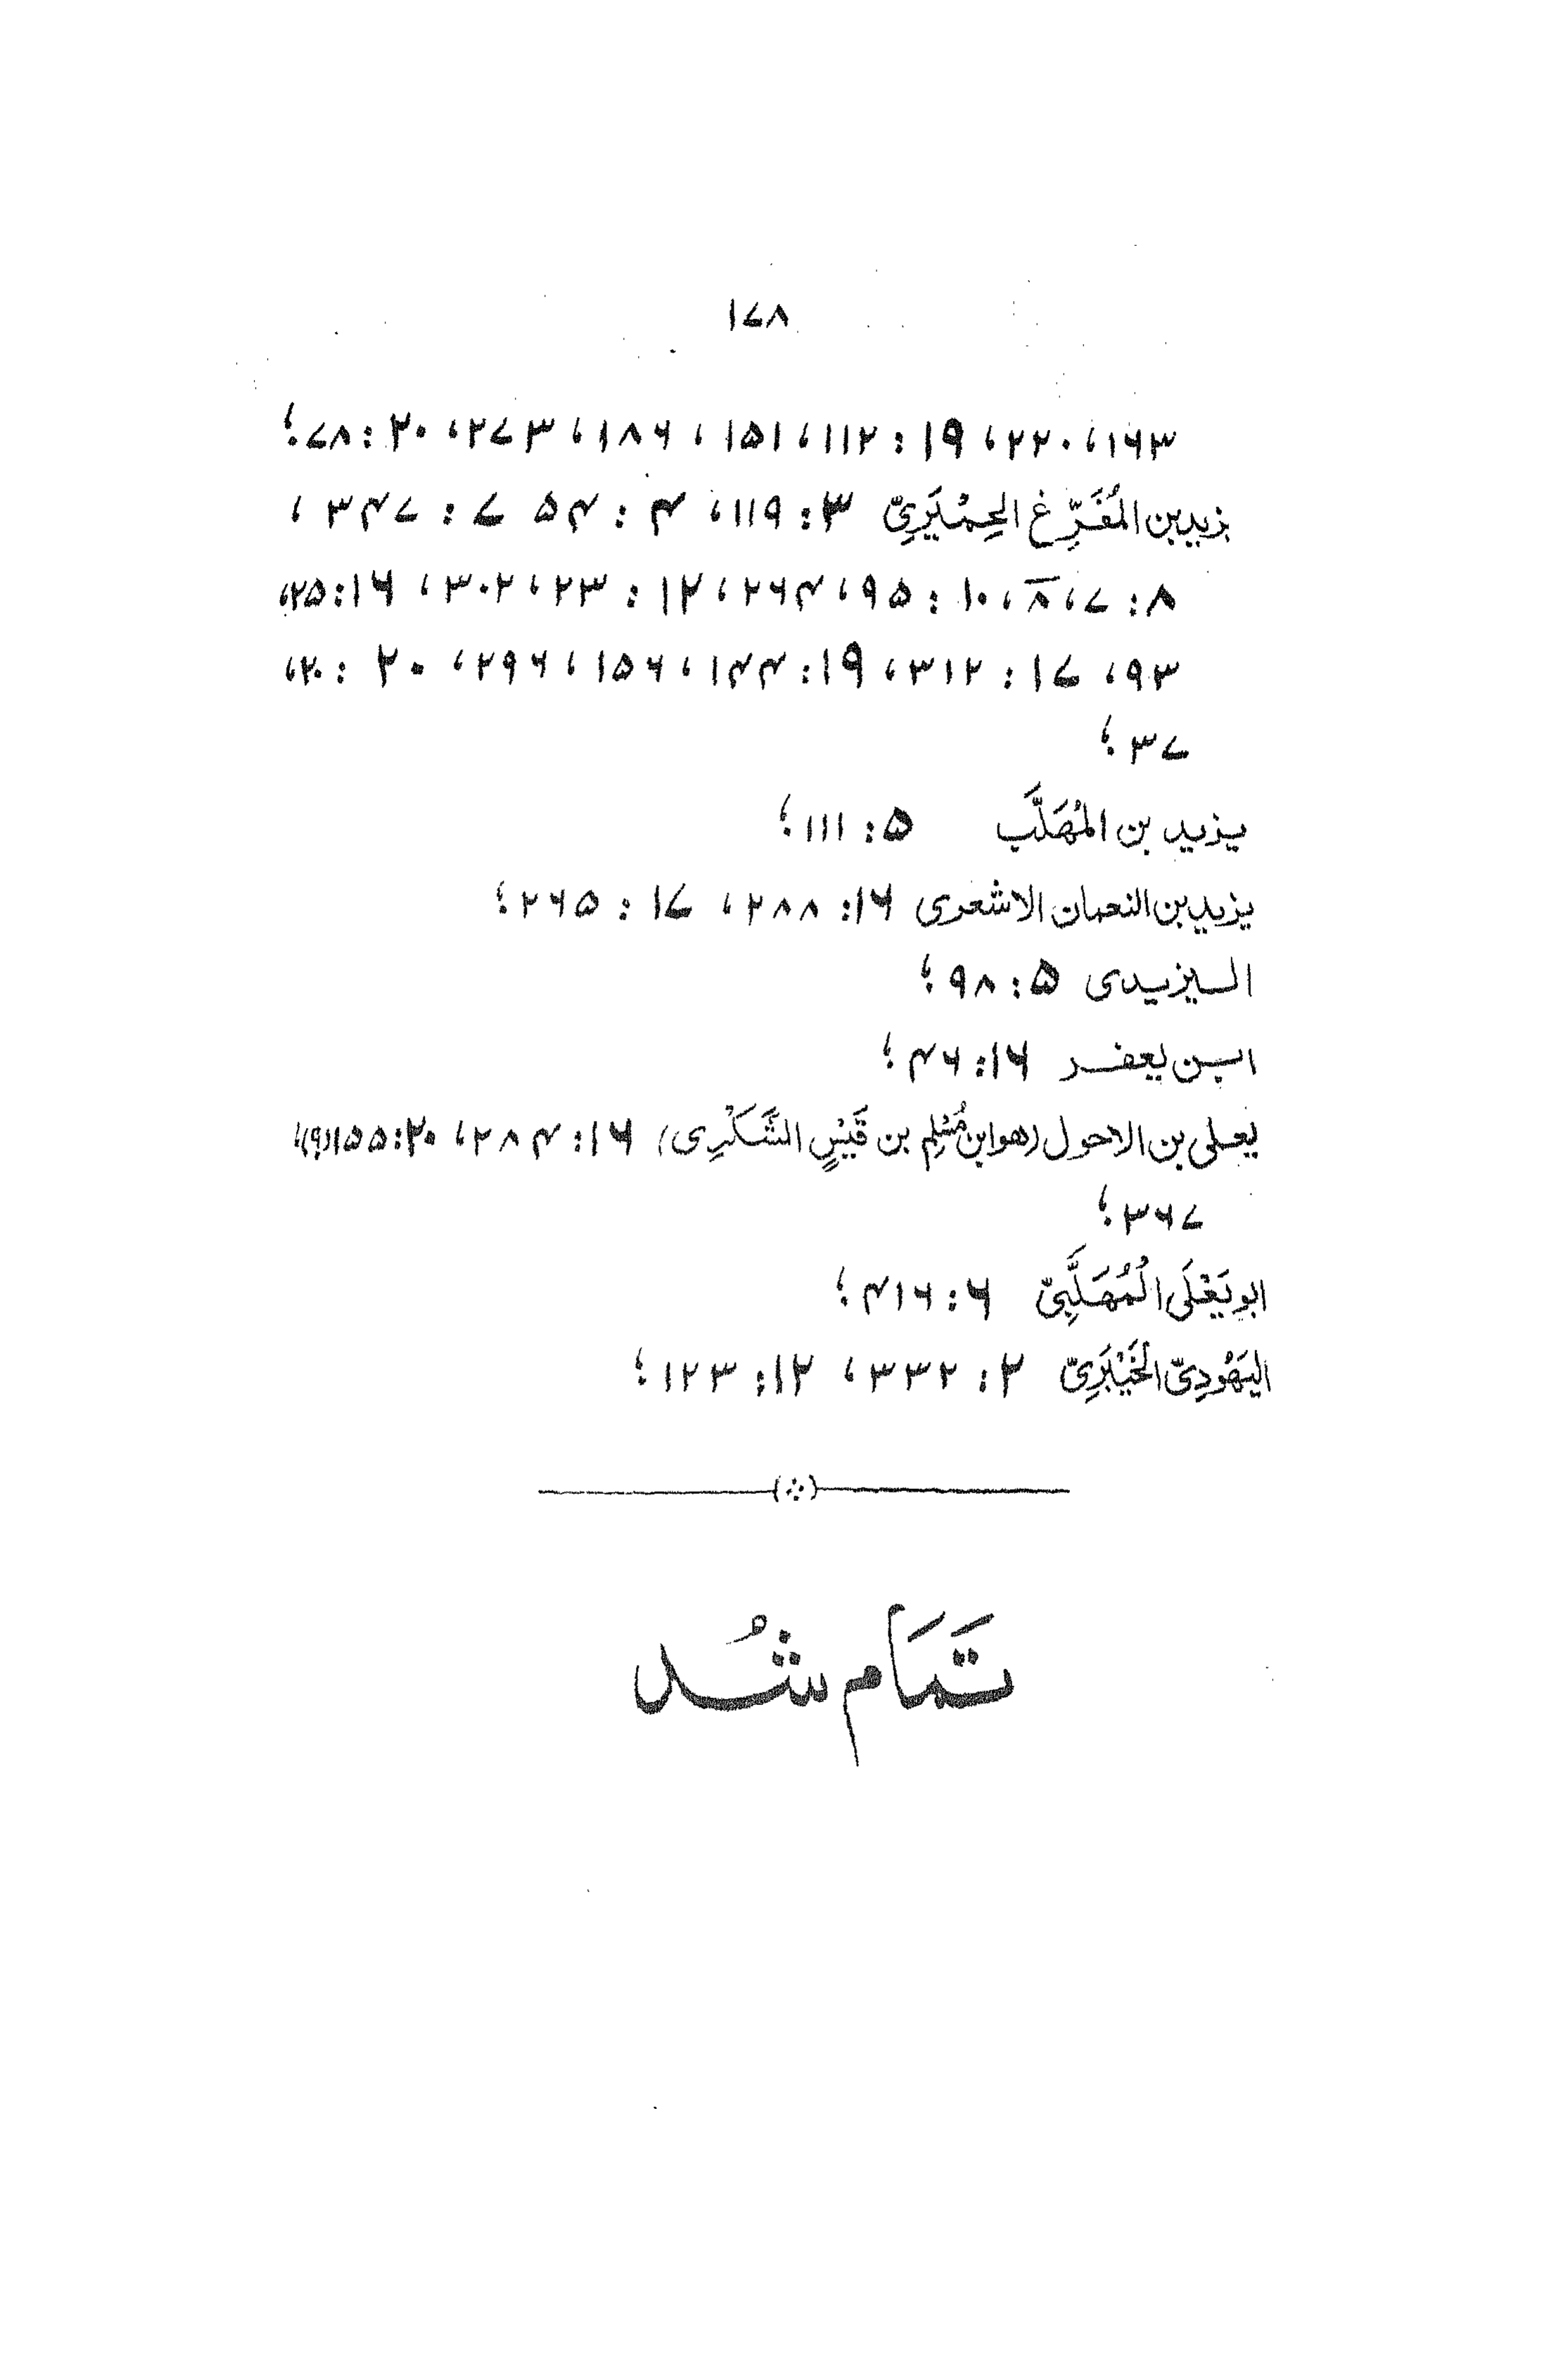 ۱۷۸
۱۶۳، ۲۲۰، ۱۹: ۱۱۲، ۱۵۱، ۱۸۶، ۲۷۳، ۲۰: ۷۸؛
یزید بن المُفَرِّغ الحِمْیَرِیّ ۳: ۱۱۹، ۴: ۵۴ ۷: ۳۴۷،
۸: ۷، ۸، ۱۰: ۹۵، ۲۶۴، ۱۲: ۲۳، ۳۰۲، ۱۶: ۲۵،
۹۳، ۱۷: ۳۱۲، ۱۹: ۱۴۴، ۱۵۶، ۲۹۶، ۲۰: ۲۰،
۳۷؛
یزید بن المُهَلَّب ۵: ۱۱۱؛
یزید بن النعمان الاشعری ۱۶: ۲۸۸، ۱۷: ۲۶۵؛
الیزیدی ۵: ۹۸؛
ابن یعفر ۱۶: ۴۶؛
یعلی بن الاحول (هوابن مُسْلِم بن قَیْسٍ الشَّکْرِی) ۱۶: ۲۸۴، ۲۰: ۱۵۵(۹)،
۳۶۷؛
ابو یَعْلَی الْمُهَلَّبِیّ ۶: ۴۱۶؛
الیَهُودِیّ الخَیْبَرِیّ ۲: ۳۳۲، ۱۲: ۱۲۳؛
تَمَام شُد